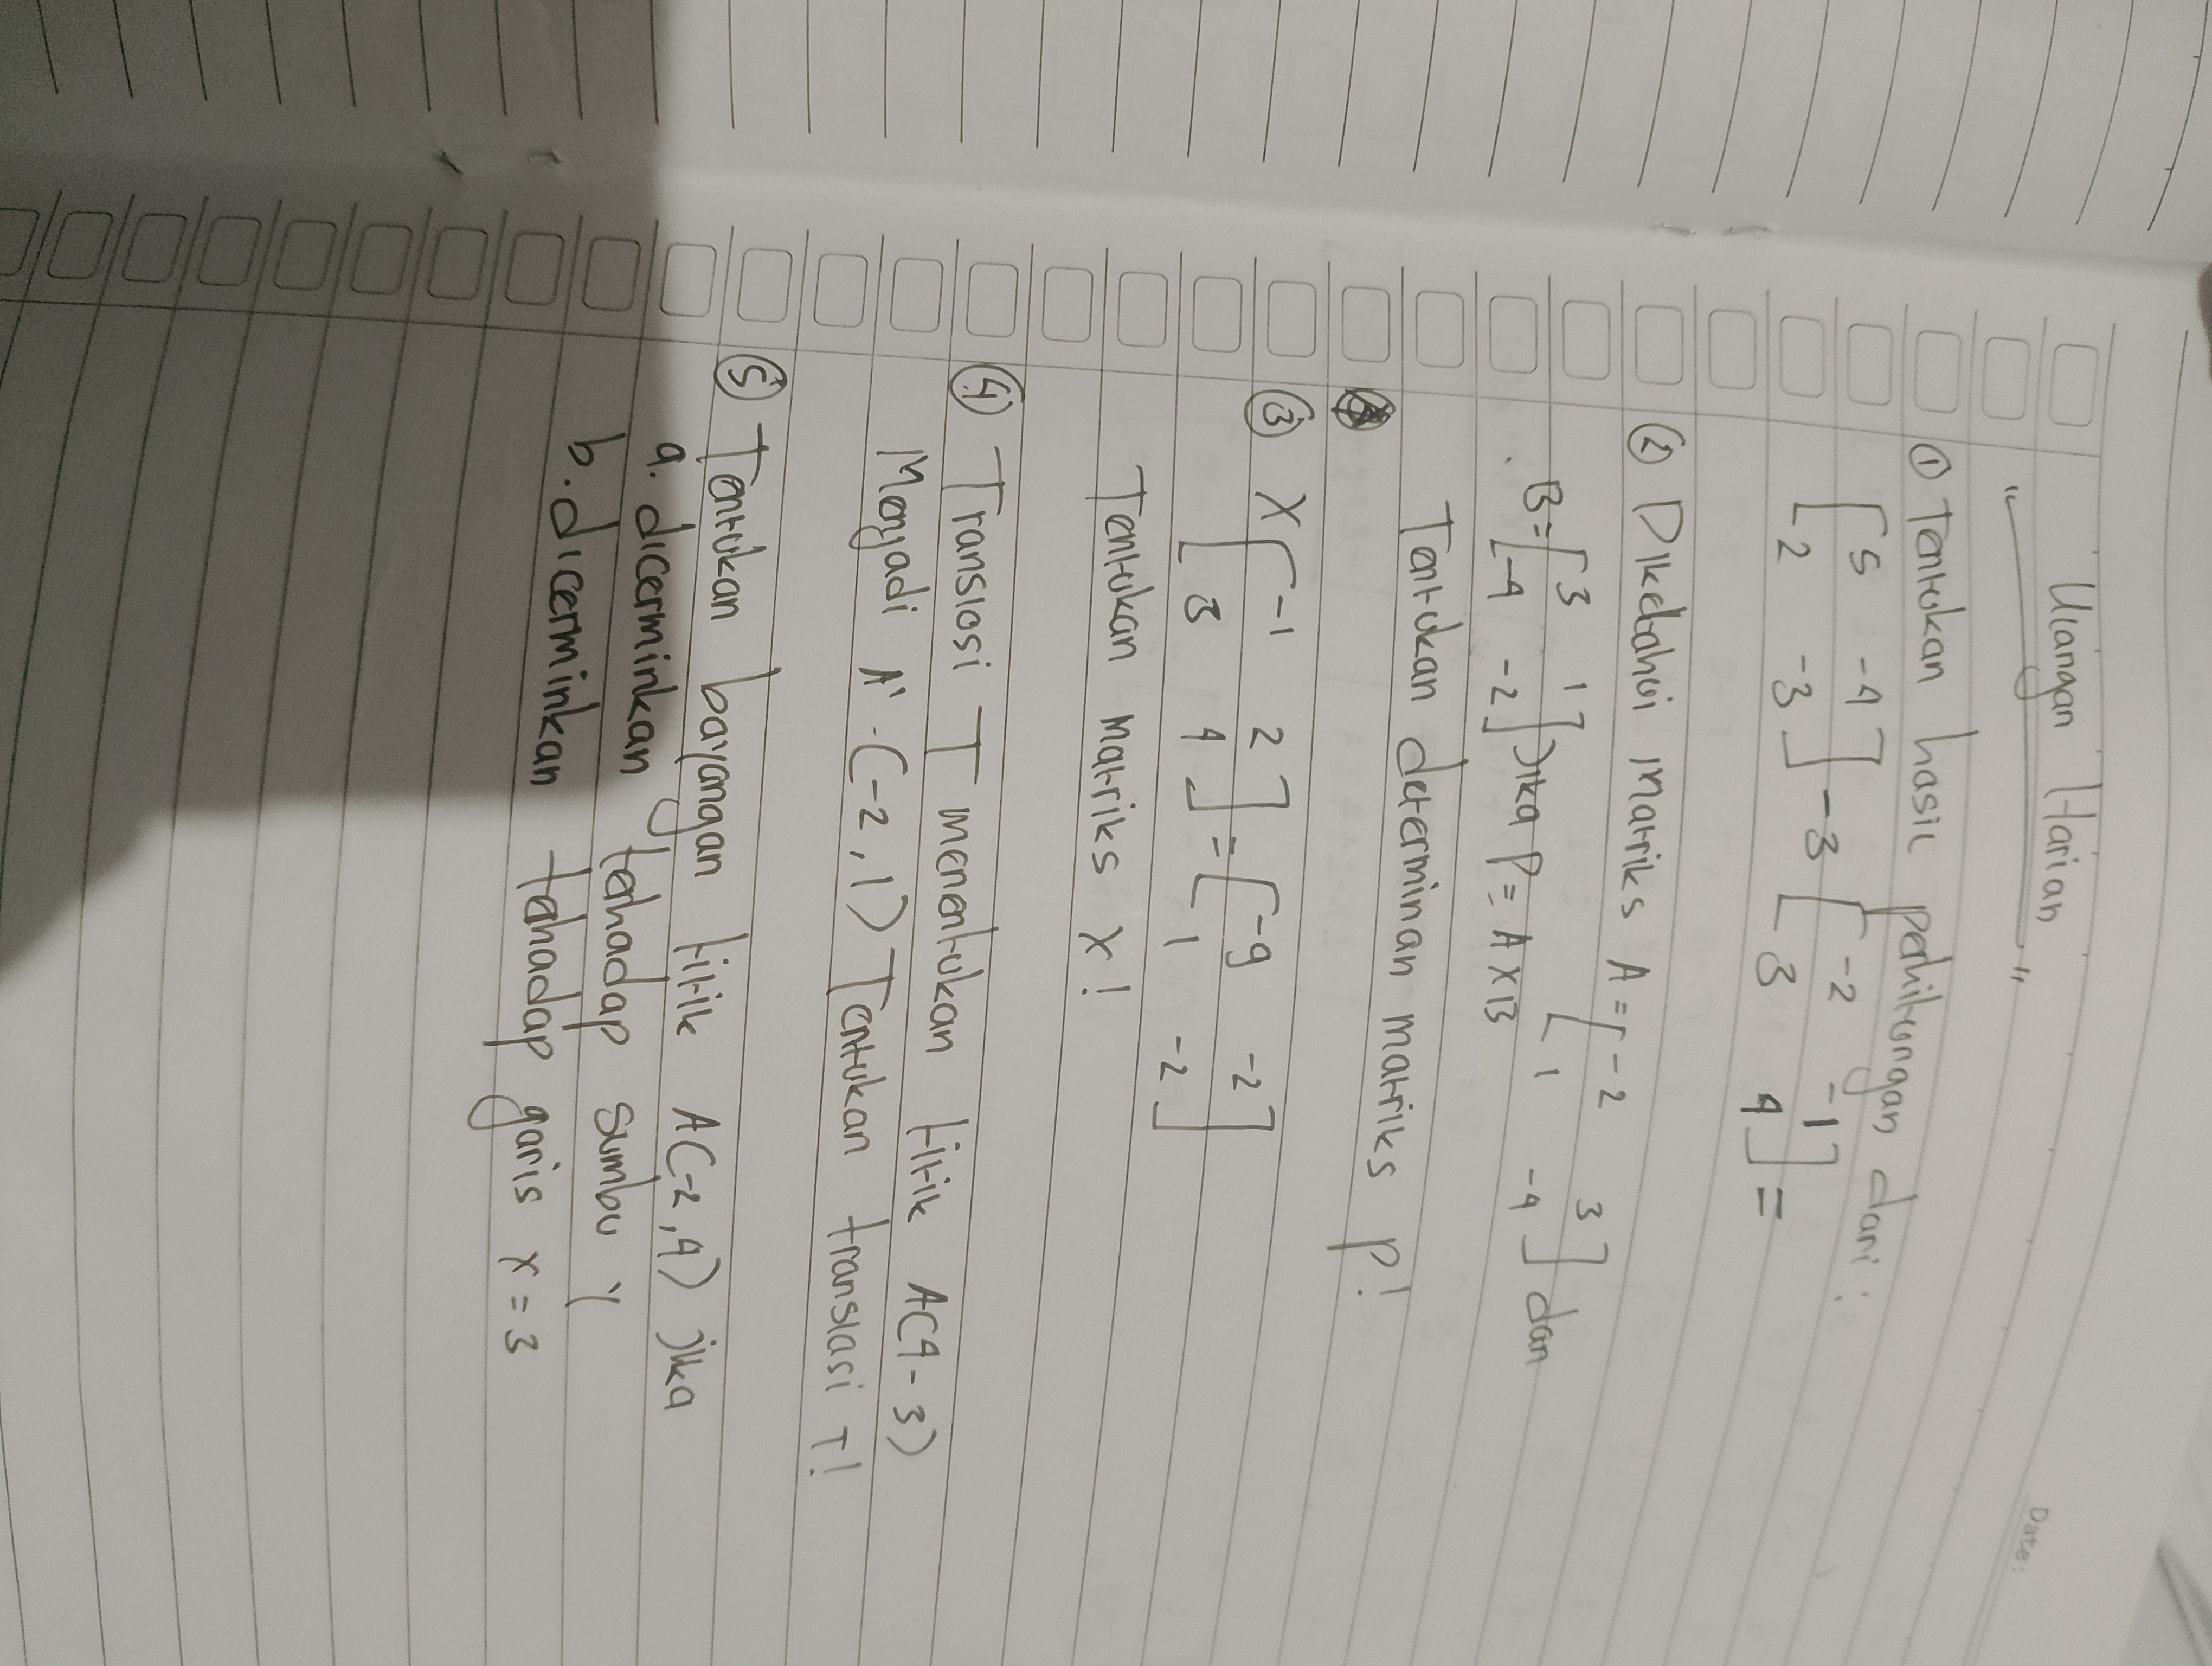 Date:
Ulangan Harian
" "
① Tentukan hasil perhitungan dari :
[ 5 -4 ] - 3 [ -2 -1 ] =
[ 2 -3 ] [ 3 4 ]
② Diketahui matriks A = [ -2 3 ] dan
[ 1 -4 ]
B = [ 3 1 ] Jika P = A x B
[ -4 -2 ]
Tentukan determinan matriks P!
③ X [ -1 2 ] = [ -9 -2 ]
[ 3 4 ] [ 1 -2 ]
Tentukan matriks X!
④ Translasi T menentukan titik A(4-3)
Menjadi A' (-2,1) Tentukan translasi T!
⑤ Tentukan bayangan titik A(-2,4) jika
a. dicerminkan terhadap sumbu Y
b. dicerminkan tehadap garis x = 3